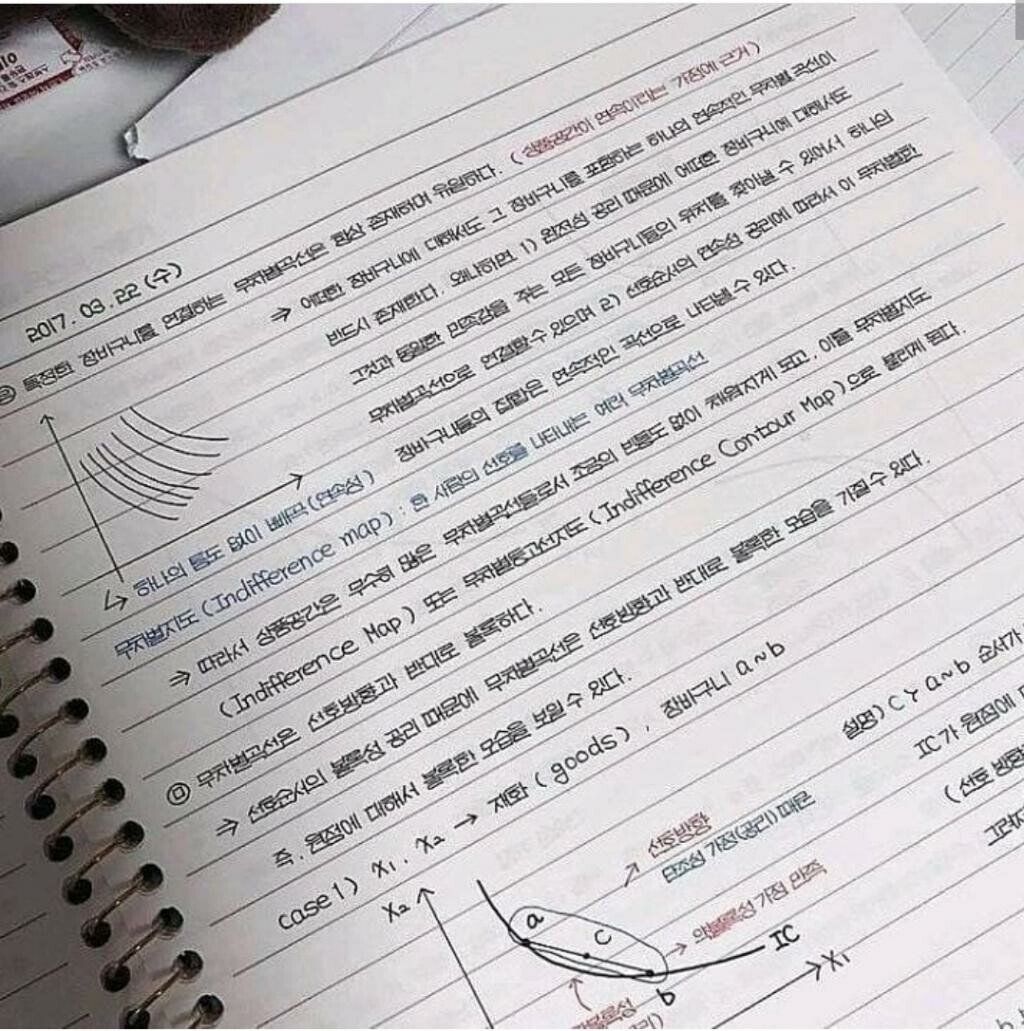 2017. 03. 22 (수)
특정한 장바구니를 연결하는 무차별곡선은 항상 존재하며 유일하다. (상품공간이 연속이라는 가정에 근거)
⇒ 어떠한 장바구니에 대해서도 그 장바구니를 포함하는 하나의 연속적인 무차별 곡선이
반드시 존재한다. 왜냐하면 1) 완전성 공리 때문에 어떠한 장바구니에 대해서도
그것과 동일한 만족감을 주는 모든 장바구니들의 위치를 찾아낼 수 있어서 하나의
무차별곡선으로 연결할 수 있으며 2) 선호순서의 연속성 공리에 따라서 이 무차별한
장바구니들의 집합은 연속적인 곡선으로 나타낼 수 있다.
↳ 하나의 틈도 없이 빼곡 (연속성)
무차별지도 (Indifference map) : 한 사람의 선호를 나타내는 여러 무차별곡선
⇒ 따라서 상품공간은 무수히 많은 무차별곡선들로서 조금의 빈틈도 없이 채워지게 되고, 이를 무차별지도
(Indifference Map) 또는 무차별등고선지도 (Indifference Contour Map)으로 불리게 된다.
ㅁ 무차별곡선은 선호방향과 반대로 볼록하다.
⇒ 선호순서의 볼록성 공리 때문에 무차별곡선은 선호방향과 반대로 볼록한 모습을 가질 수 있다.
즉, 원점에 대해서 볼록한 모습을 보일 수 있다.
case 1) x₁, x₂ → 재화 (goods), 장바구니 a~b
설명) C≻a~b 순서가
IC가 원점에
(선호 방향
x₂
↗ 선호방향
단조성 가정(공리) 때문
a
c
b
→ 약볼록성 가정 만족
IC
x₁